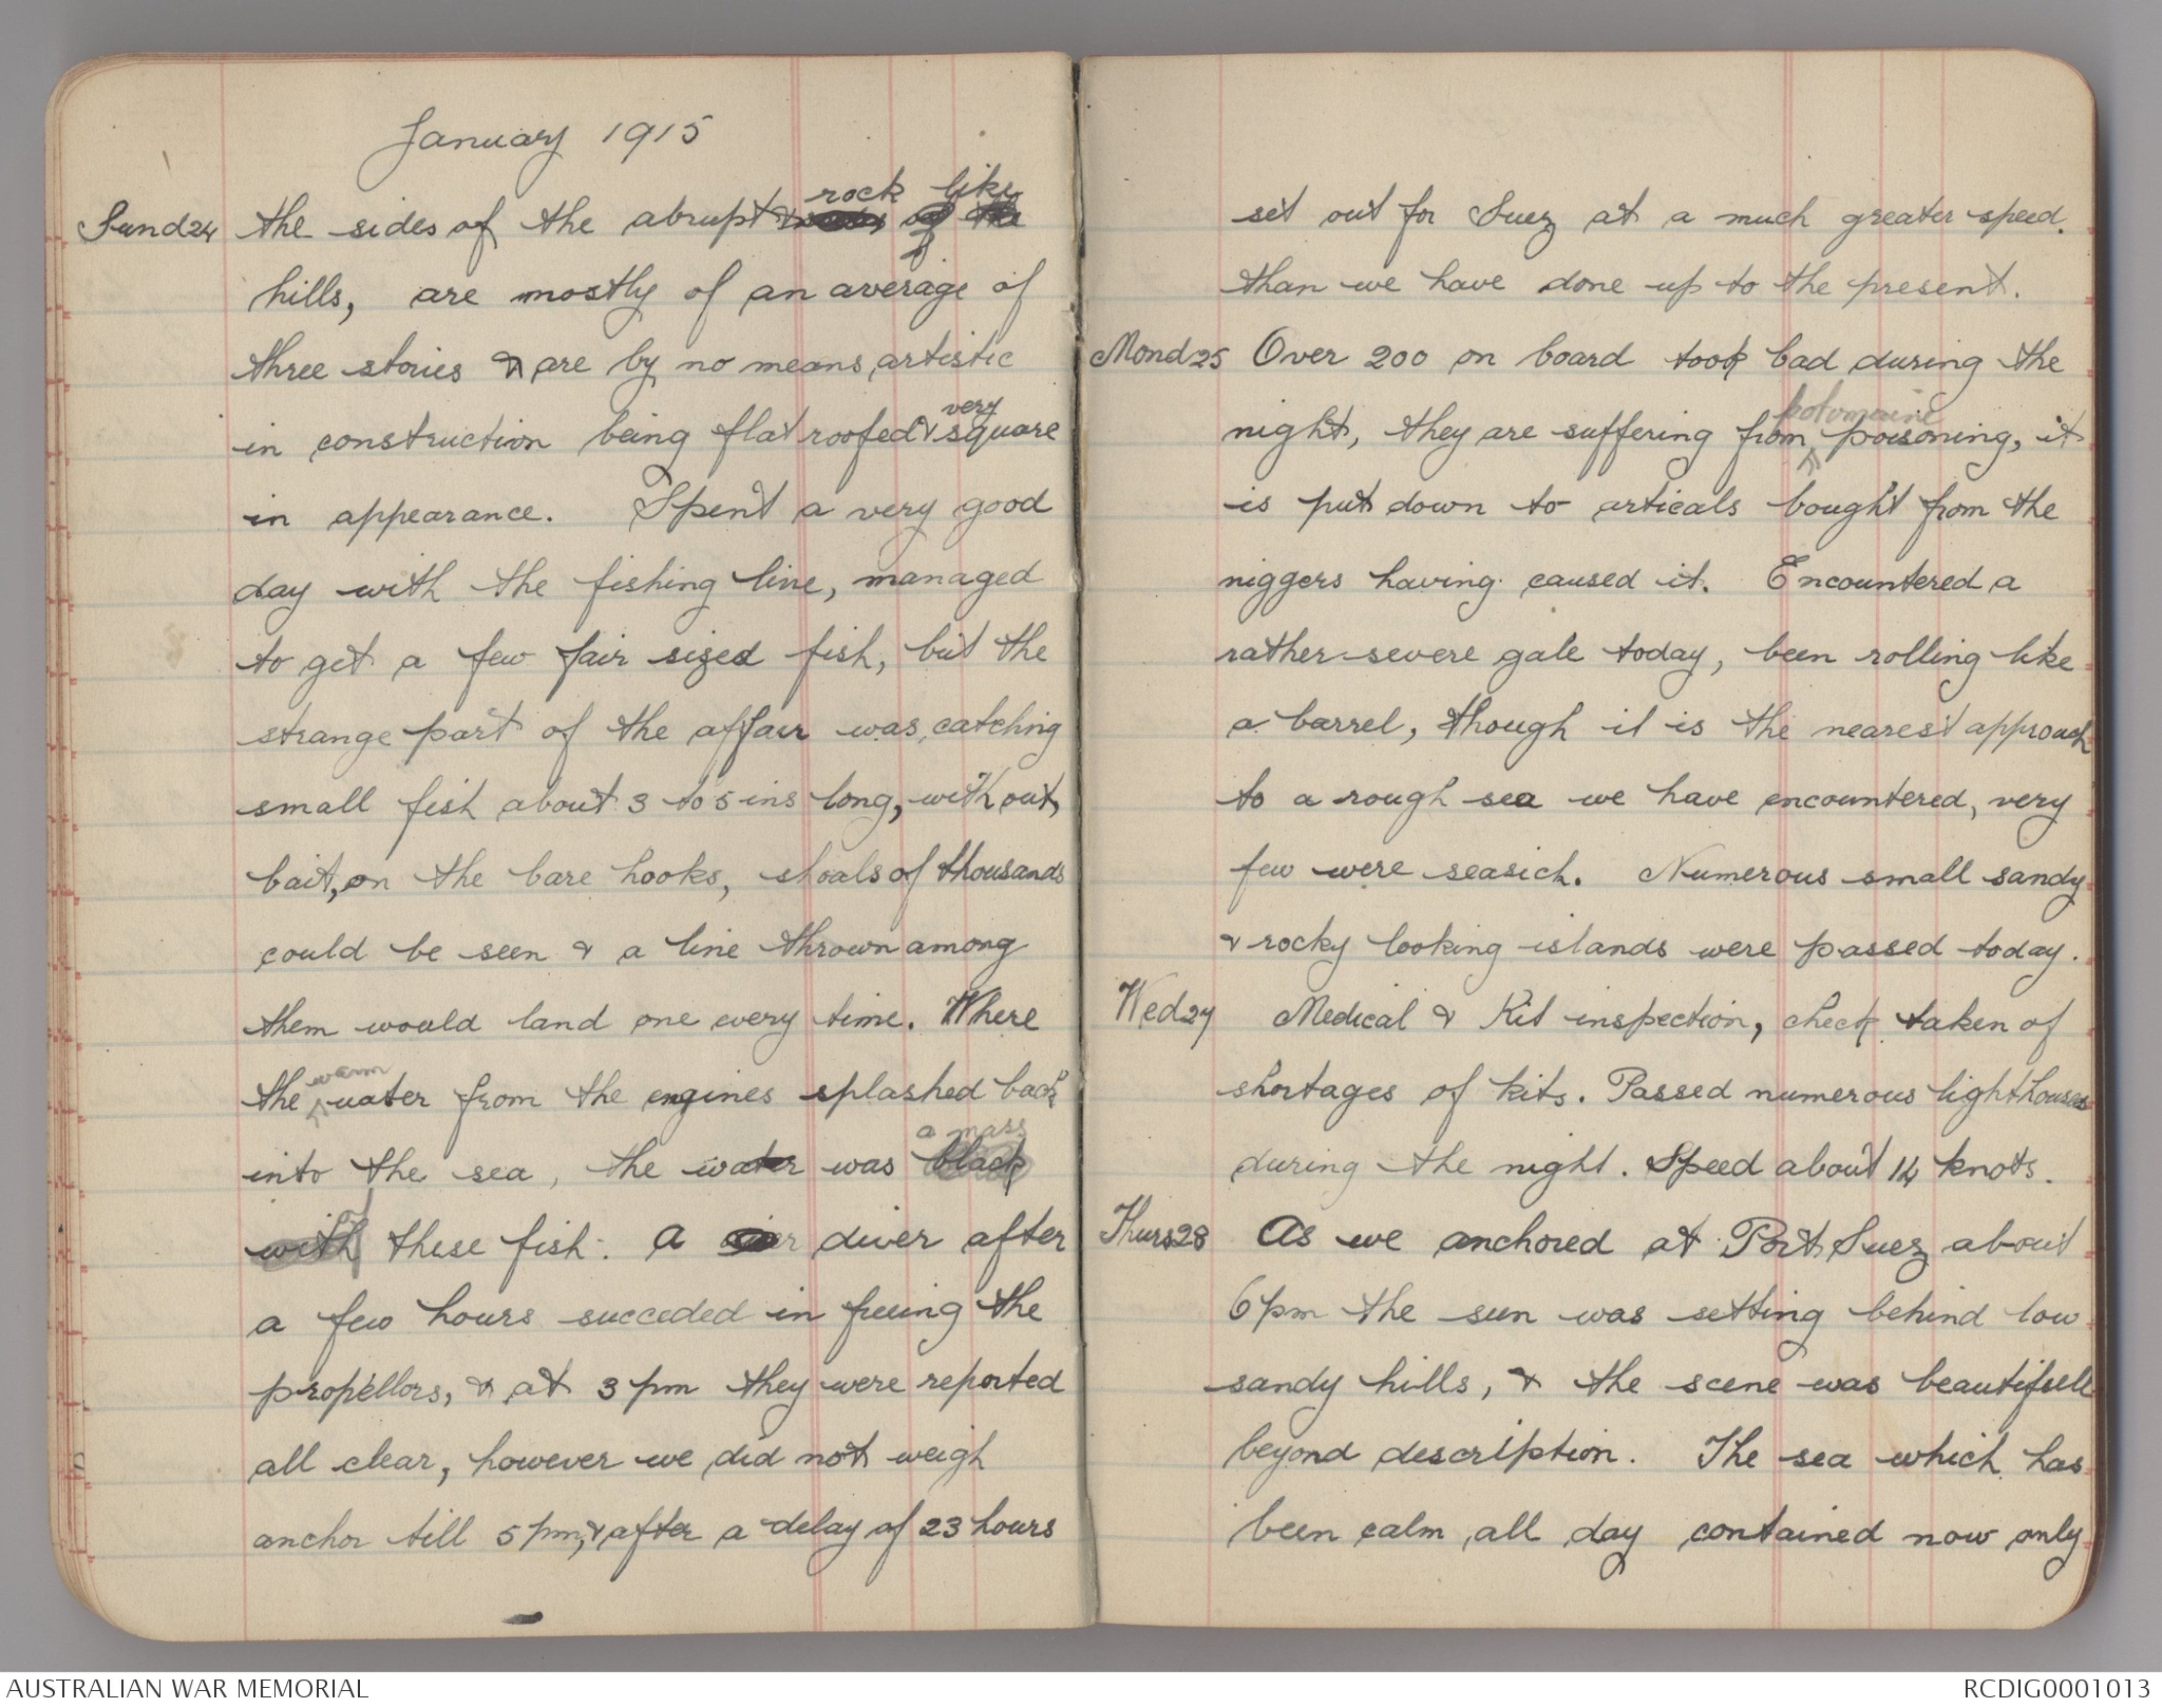 January 1915
Sund 24 the sides of the abrupt & rock like
hills, are mostly of an average of
three stories & are by no means artistic
in construction being flat roofed & very square
in appearance. Spent a very good
day with the fishing line, managed
to get a few fair sized fish, but the
strange part of the affair was, catching
small fish about 3 to 5 ins long, without,
bait, on the bare hooks, shoals of thousands
could be seen & a line thrown among
them would land one every time. Where
the warm water from the engines splashed back
into the sea, the water was a mass black
with of these fish. A diver after
a few hours succeded in freeing the
propellors, & at 3 pm they were reported
all clear, however we did not weigh
anchor till 5 pm, & after a delay of 23 hours
set out for Suez at a much greater speed.
than we have done up to the present.
Mond 25 Over 200 on board took bad during the
night, they are suffering from potomaine poisoning, it
is put down to articals bought from the
niggers having caused it. Encountered a
rather severe gale today, been rolling like
a barrel, though it is the nearest approach
to a rough sea we have encountered, very
few were seasick. Numerous small sandy
& rocky looking islands were passed today.
Wed 27 Medical & Kit inspection, check taken of
shortages of kits. Passed numerous lighthouses
during the night. Speed about 14 knots.
Thurs 28 As we anchored at Port Suez about
6 pm the sun was setting behind low
sandy hills, & the scene was beautifull
beyond description. The sea which has
been calm all day contained now only
AUSTRALIAN WAR MEMORIAL
RCDIG0001013